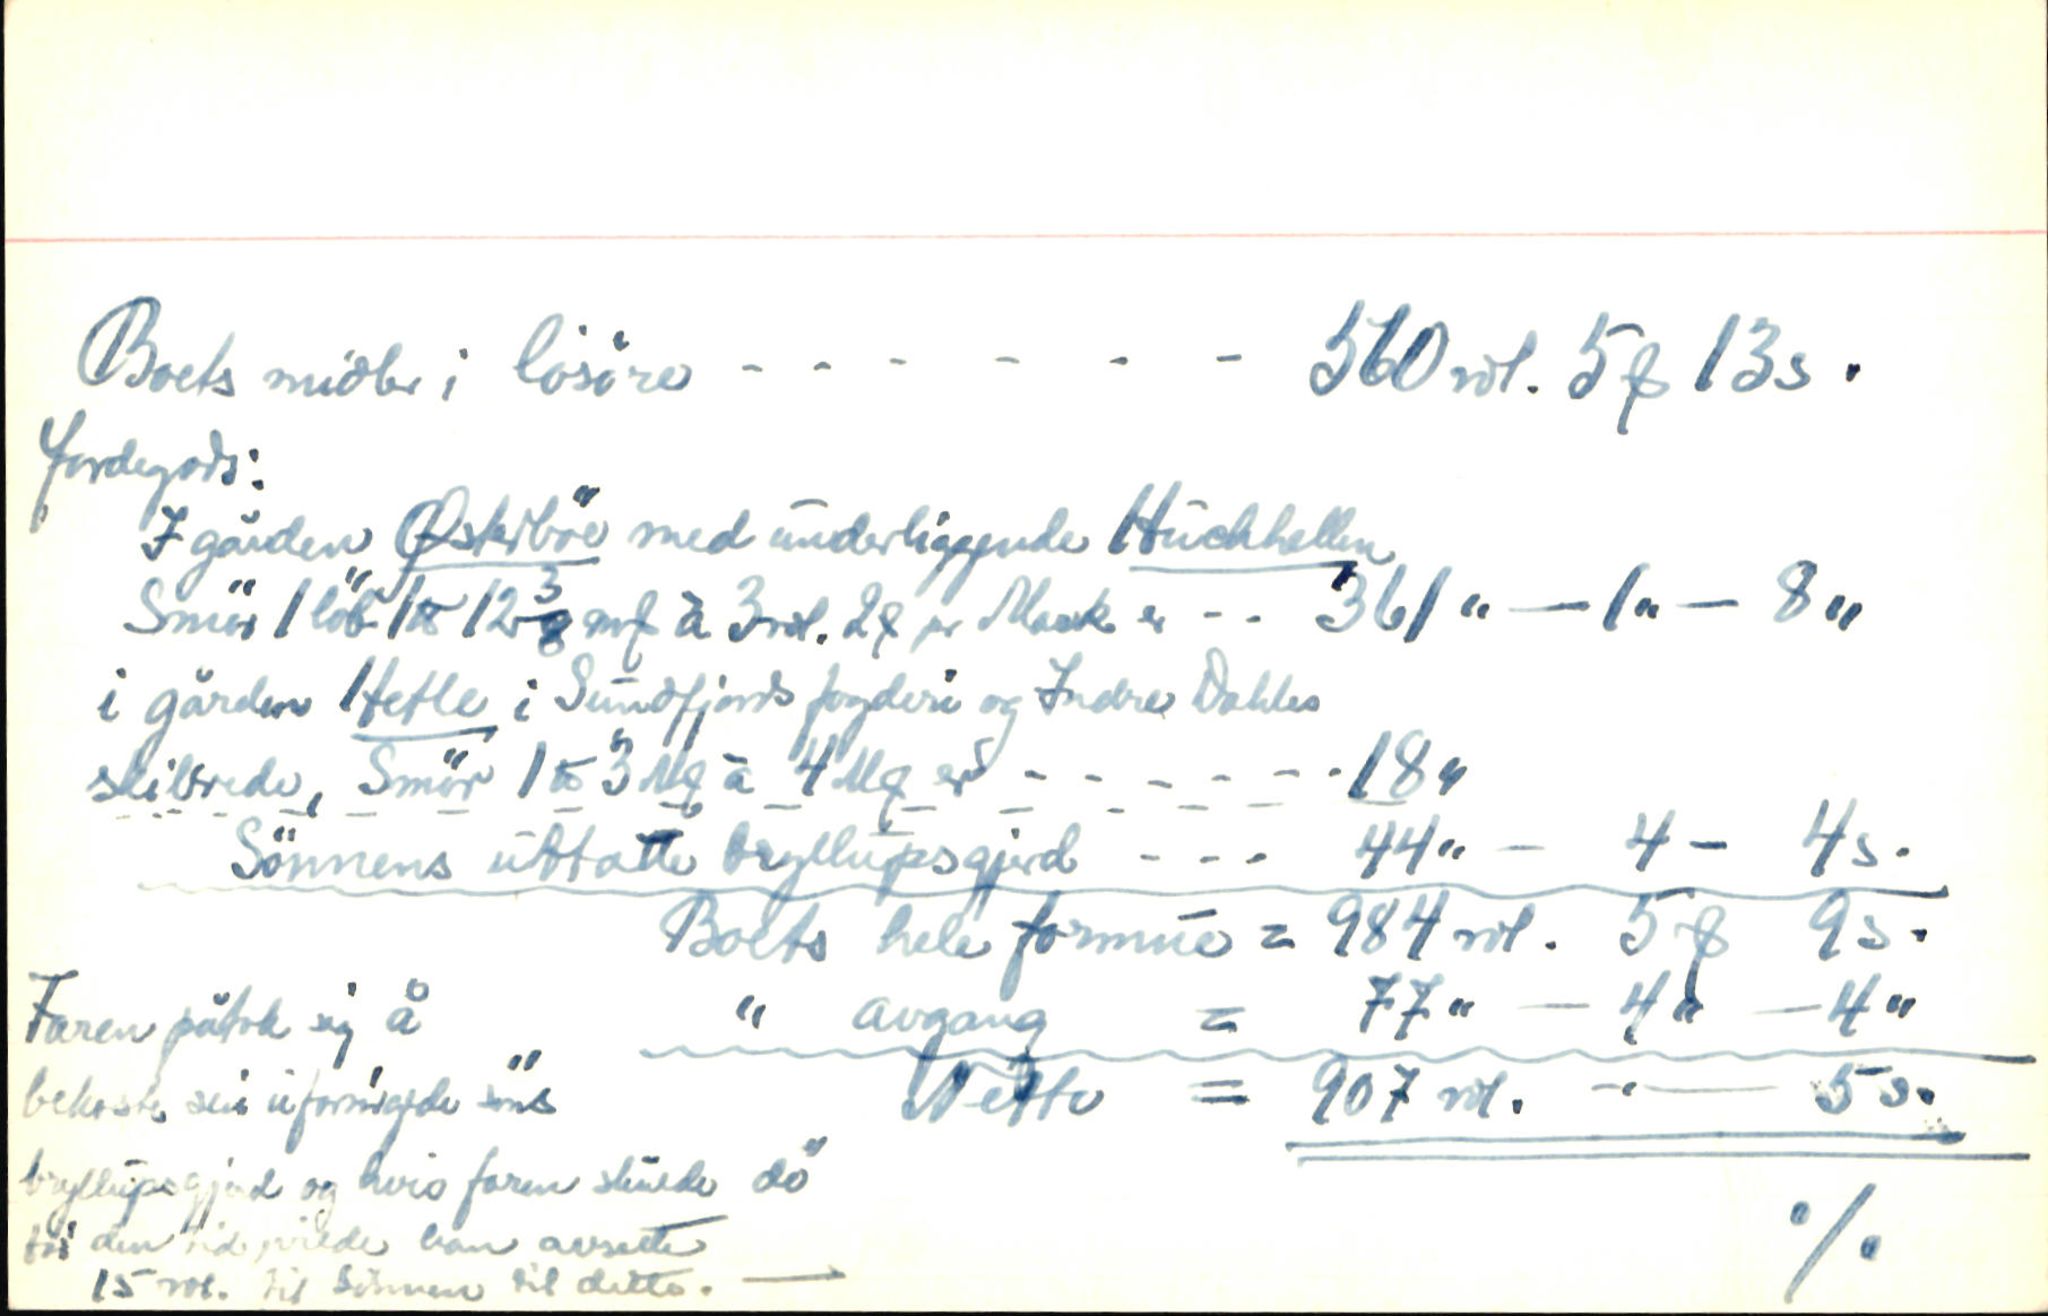 Boets midler i lösöre - - - - - - 560 rdl. 5 ₰ 13 s.
Jordegods:
I gården Østerbö med underliggende Huchhellen
Smör 1 löb 1 ℔ 12 3/8 mk à 3 rdl. 2 ₰ pr Mark er - - 361 " — 1 " — 8 "
i gården Hetle i Sundfjords fogderi og Indre Dahles
skibrede, Smör 1 ℔ 3 Mk à 4 Mk er - - - - - - - 18 "
Sönnens uttatte bryllupsgjerd - - - 44 " — 4 — 4 s.
Boets hele formue = 984 rdl. 5 ₰ 9 s.
" avgang = 77 " — 4 " — 4 "
Netto = 907 rdl. - " — 5 s.
Faren påtok sig å
bekoste sin uformögde söns
bryllupsgjerd og hvis faren skulde dö
för den tid, vilde han avsette
15 rdl. til sönnen til dette. —
%